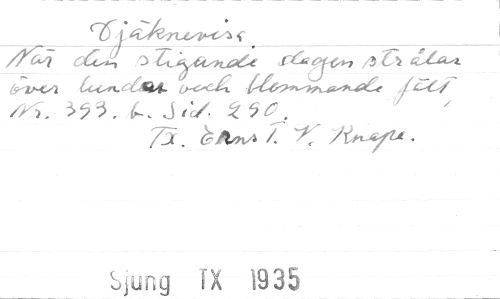 Djäknevisa.
När den stigande dagen strålar
över lundar och blommande fält,
Nr. 393. b. Sid. 290.
Tx. Ernst V. Knape.
Sjung TX 1935